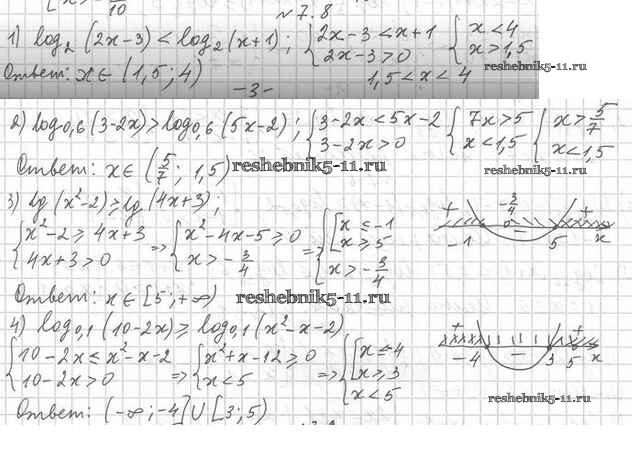 10
№7.8
1) log₂(2x-3) < log₂(x+1); { 2x-3 < x+1 { x < 4
2x-3 > 0 x > 1,5
Ответ: x∈(1,5; 4) 1,5 < x < 4
reshebnik5-11.ru
-3-
2) log₀,₆(3-2x) > log₀,₆(5x-2); { 3-2x < 5x-2 { 7x > 5 { x > 5/7
3-2x > 0 x < 1,5 x < 1,5
Ответ: x∈(5/7; 1,5)
reshebnik5-11.ru
reshebnik5-11.ru
3) lg(x²-2) ≥ lg(4x+3);
{ x²-2 ≥ 4x+3 => { x²-4x-5 ≥ 0 => { [ x ≤ -1
4x+3 > 0 x > -3/4 x ≥ 5
x > -3/4
+ -3/4 +
-1 - 5 x
Ответ: x∈[5; +∞)
reshebnik5-11.ru
4) log₀,₁(10-2x) ≥ log₀,₁(x²-x-2)
{ 10-2x ≤ x²-x-2 => { x²+x-12 ≥ 0 => { [ x ≤ -4
10-2x > 0 x < 5 x ≥ 3
x < 5
+ +
-4 - 3 5 x
Ответ: (-∞; -4] ∪ [3; 5)
reshebnik5-11.ru